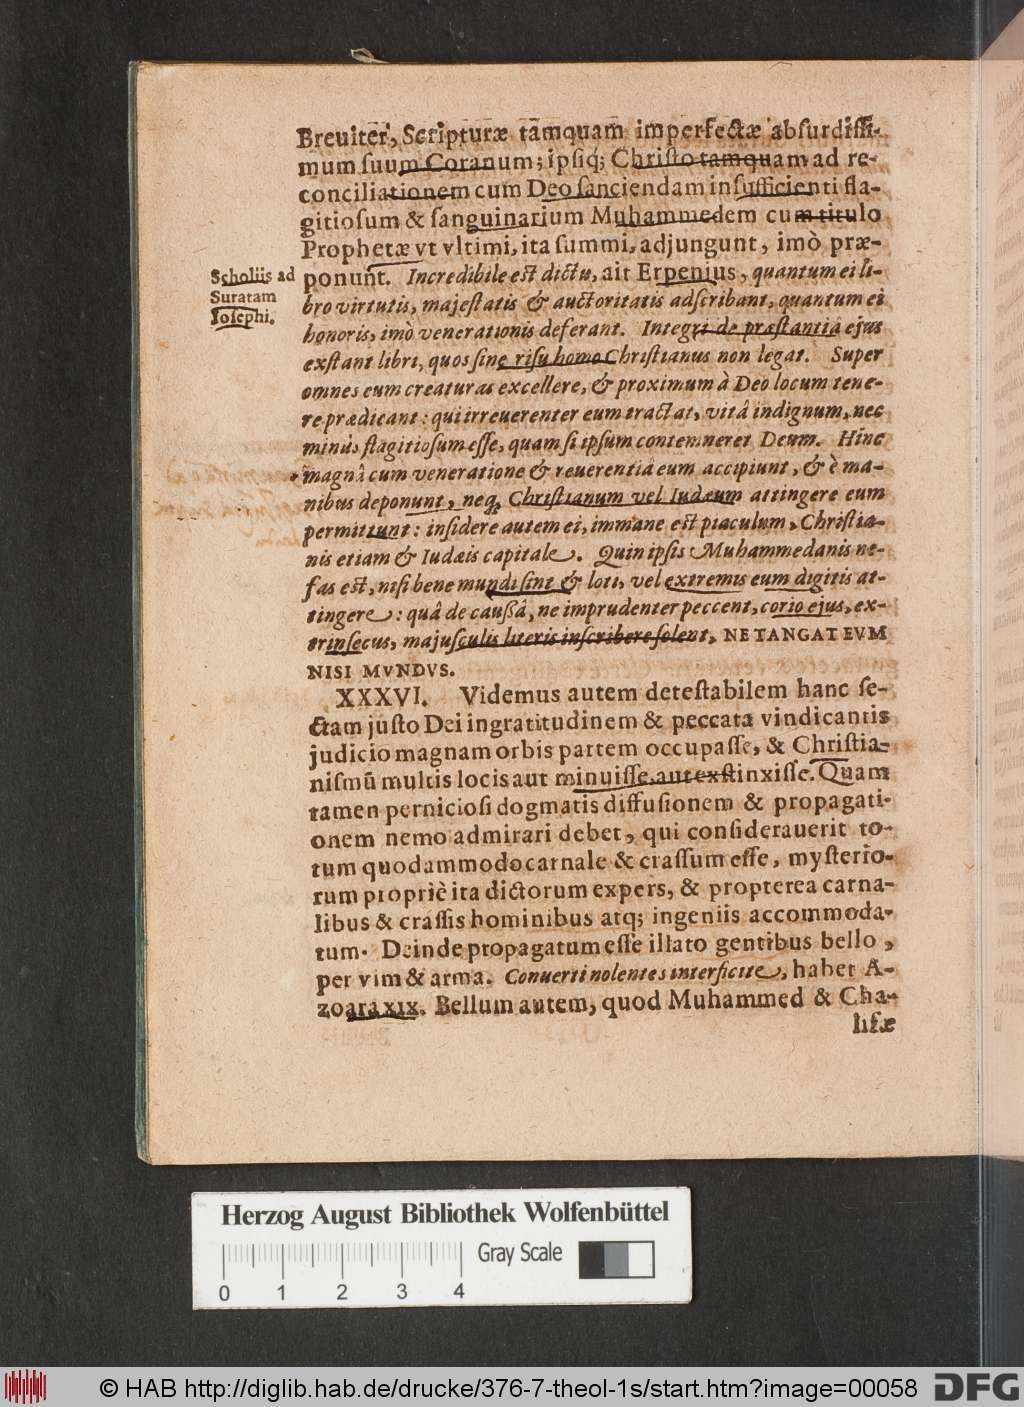 Breuiter, Scripturæ tamquam imperfectæ absurdissi-
mum suum Coranum; ipsiq; Christo tamquam ad re-
conciliationem cum Deo sanciendam insufficienti fla-
gitiosum & sanguinarium Muhammedem cum titulo
Prophetæ vt vltimi, ita summi, adjungunt, imò præ-
ponunt. Incredibile est dictu, ait Erpenius, quantum ei li-
Scholiis ad
Suratam
Iosephi.
bro virtutis, majestatis & auctoritatis adscribant, quantum ei
honoris, imò venerationis deferant. Integri de præstantiâ ejus
exstant libri, quos sine risu homo Christianus non legat. Super
omnes eum creaturas excellere, & proximum à Deo locum tene-
re prædicant: qui irreuerenter eum tractat, vitâ indignum, nec
minùs flagitiosum esse, quam si ipsum contemneret Deum. Hinc
magnâ cum veneratione & reuerentiâ eum accipiunt, & è ma-
nibus deponunt, neq; Christianum vel Iudæum attingere eum
permittunt: insidere autem ei, immane est piaculum, Christia-
nis etiam & Iudæis capitale. Quin ipsis Muhammedanis ne-
fas est, nisi bene mundi sint & loti, vel extremis eum digitis at-
tingere: quâ de caussâ, ne imprudenter peccent, corio ejus, ex-
trinsecus, majusculis literis inscribere solent, NE TANGAT EVM
NISI MVNDVS.
XXXVI. Videmus autem detestabilem hanc se-
ctam justo Dei ingratitudinem & peccata vindicantis
judicio magnam orbis partem occupasse, & Christia-
nismū multis locis aut minuisse aut exstinxisse. Quam
tamen perniciosi dogmatis diffusionem & propagati-
onem nemo admirari debet, qui considerauerit to-
tum quodammodo carnale & crassum esse, mysterio-
rum propriè ita dictorum expers, & propterea carna-
libus & crassis hominibus atq; ingeniis accommoda-
tum. Deinde propagatum esse illato gentibus bello,
per vim & arma. Conuerti nolentes interficite, habet A-
zoara XIX. Bellum autem, quod Muhammed & Cha-
lifæ
Herzog August Bibliothek Wolfenbüttel
Gray Scale
0 1 2 3 4
© HAB http://diglib.hab.de/drucke/376-7-theol-1s/start.htm?image=00058
DFG